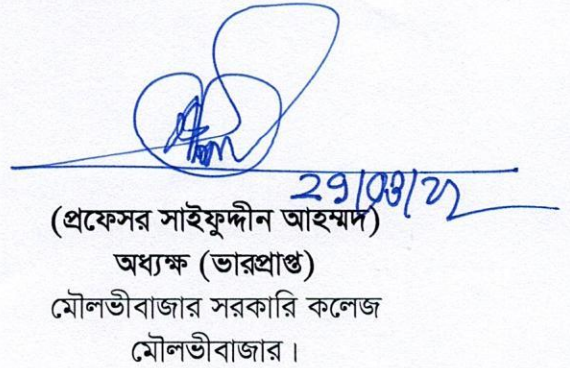 (প্রফেসর সাইফুদ্দীন আহম্মদ)
অধ্যক্ষ (ভারপ্রাপ্ত)
মৌলভীবাজার সরকারি কলেজ
মৌলভীবাজার।